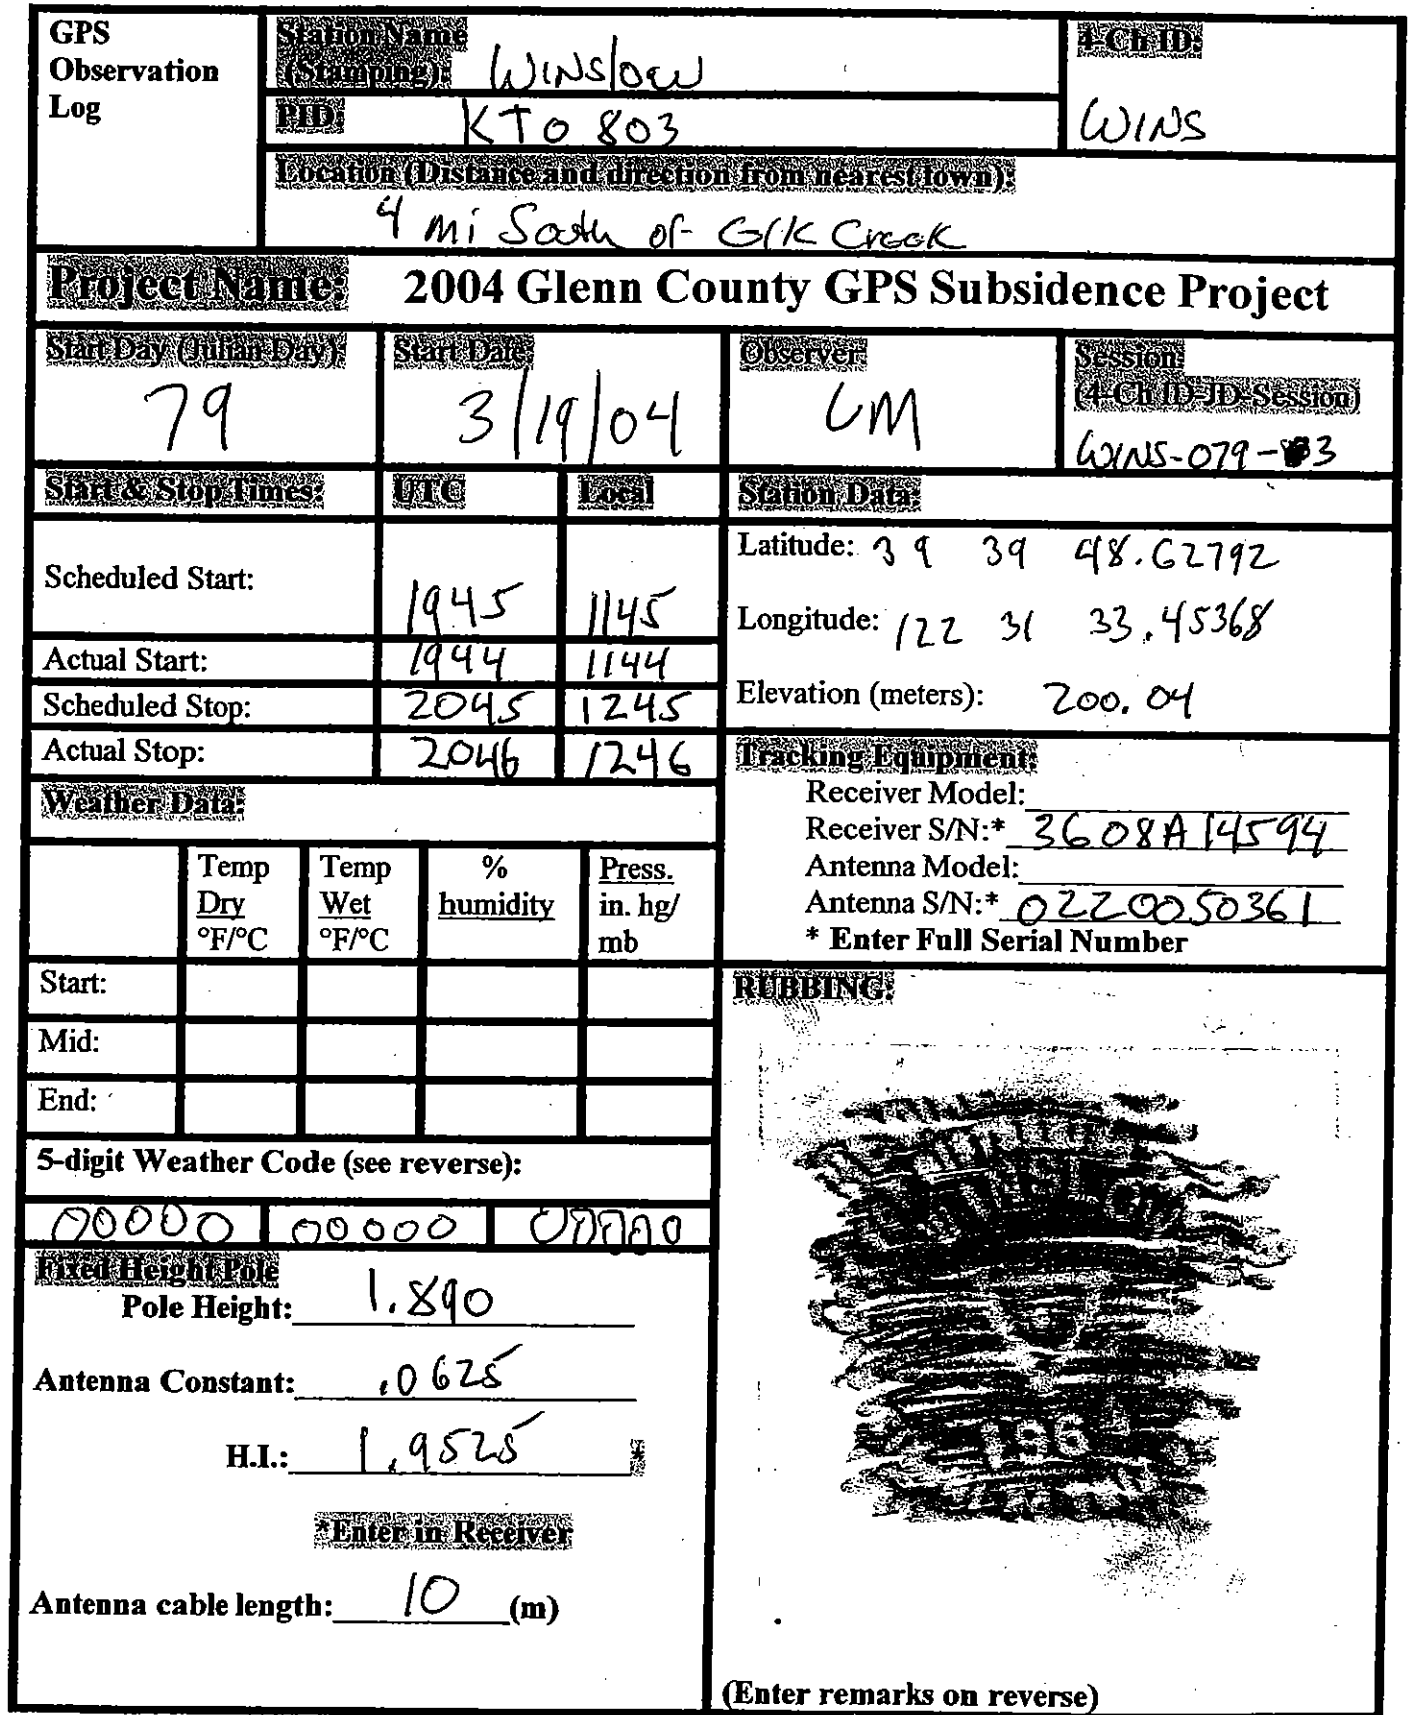 GPS
Observation
Log
Station Name
(Stamping): WINSlOW
PID: KT0803
4-Ch ID:
WINS
Location (Distance and direction from nearest town):
4 mi South of Elk Creek
Project Name: 2004 Glenn County GPS Subsidence Project
Start Day (Julian Day)
79
Start Date
3/19/04
Observer
Session
(4-Ch ID-JD-Session)
WINS-079-3
Start & Stop Times: UTC Local
Scheduled Start: 1945 1145
Actual Start: 1944 1144
Scheduled Stop: 2045 1245
Actual Stop: 2046 1246
Station Data:
Latitude: 39 39 48.62792
Longitude: 122 31 33.45368
Elevation (meters): 200.04
Tracking Equipment:
Receiver Model:
Receiver S/N:* 3608A14594
Antenna Model:
Antenna S/N:* 0220050361
* Enter Full Serial Number
Weather Data:
Temp Dry °F/°C
Temp Wet °F/°C
% humidity
Press. in. hg/ mb
Start:
Mid:
End:
5-digit Weather Code (see reverse):
00000 00000 00000
Fixed Height Pole
Pole Height: 1.890
Antenna Constant: .0625
H.I.: 1.9525 *
*Enter in Receiver
Antenna cable length: 10 (m)
RUBBING:
(Enter remarks on reverse)